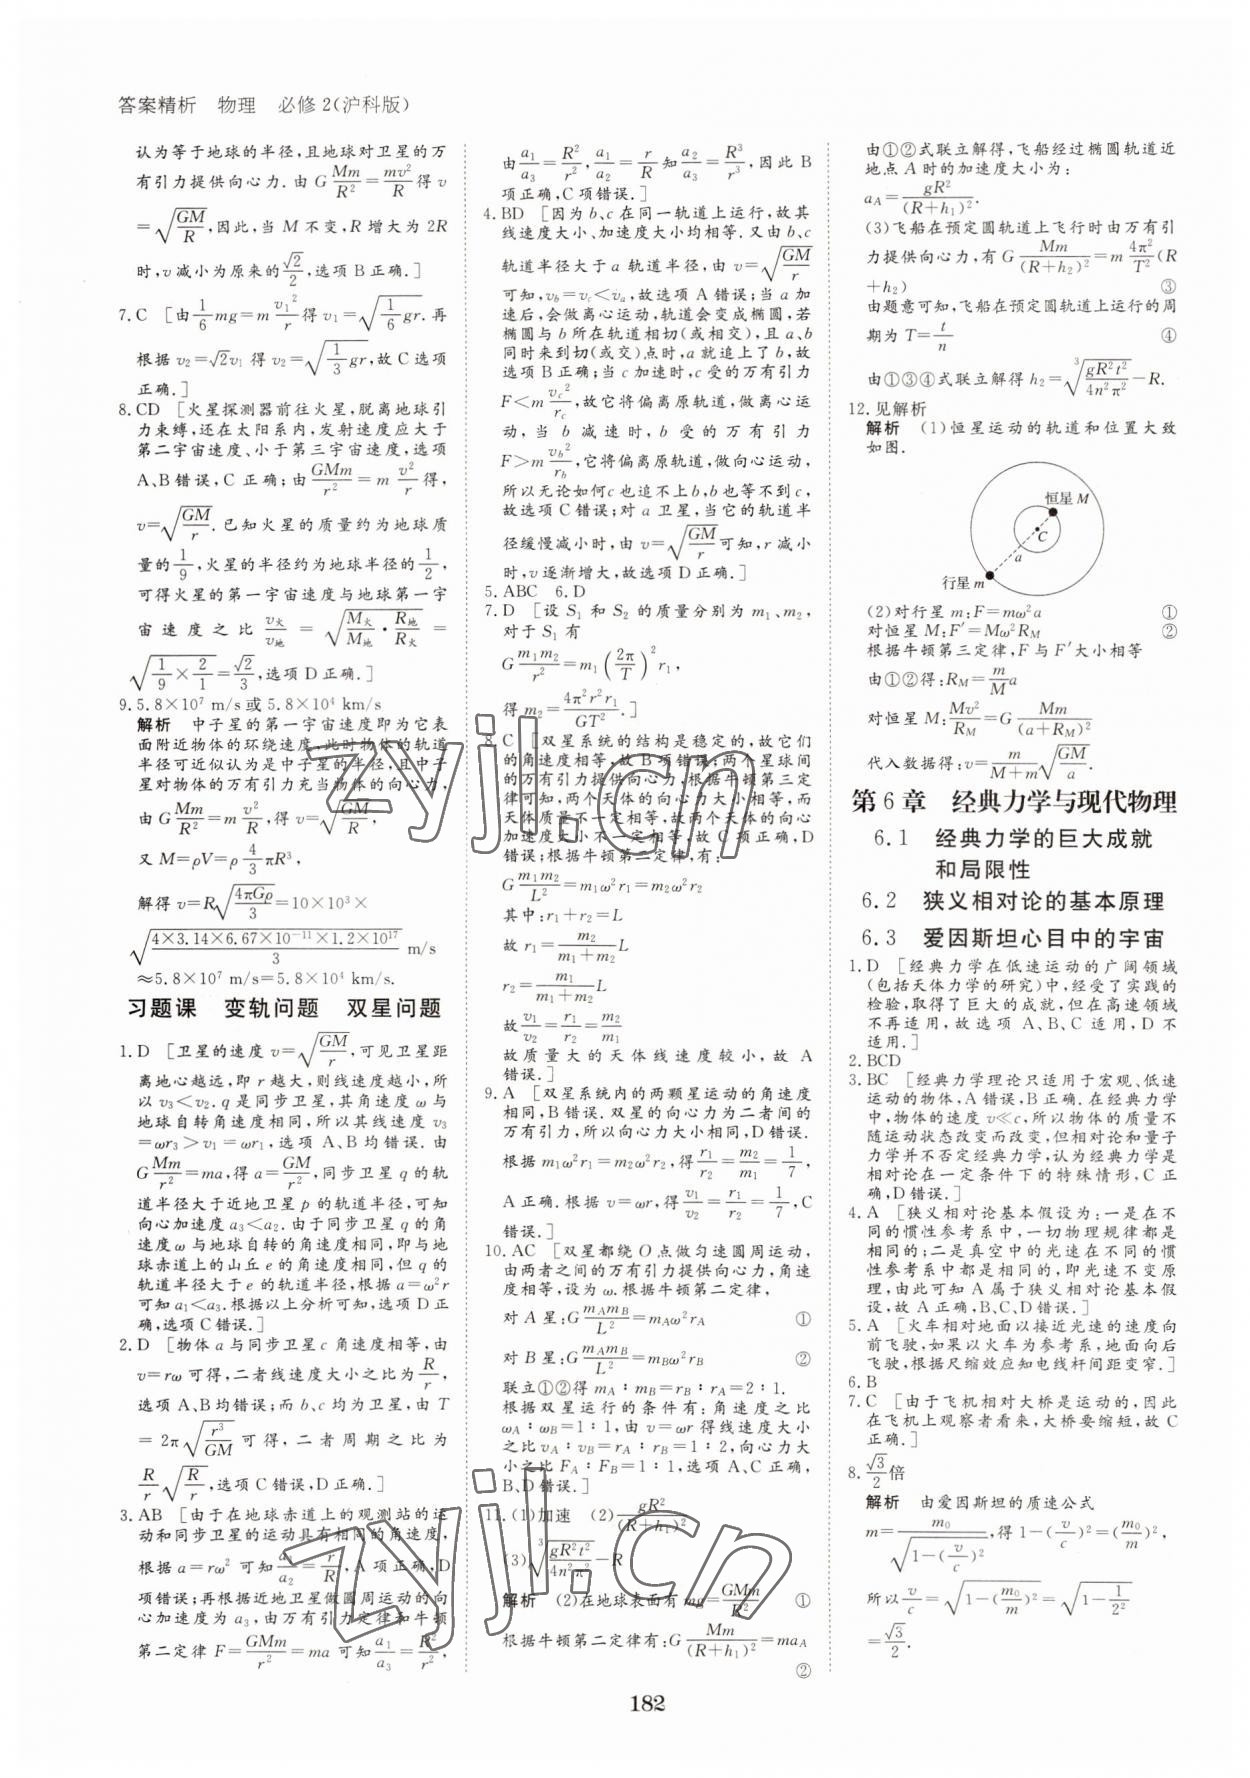 答案精析 物理 必修2(沪科版)
认为等于地球的半径,且地球对卫星的万
有引力提供向心力.由G Mm/R²=mv²/R得 v
=√(GM/R),因此,当 M 不变,R增大为 2R
时,v减小为原来的√2/2,选项 B 正确.]
7.C [由1/6 mg=m v₁²/r得 v₁=√(1/6 gr).再
根据 v₂=√2v₁ 得 v₂=√(1/3 gr),故 C 选项
正确.]
8.CD [火星探测器前往火星,脱离地球引
力束缚,还在太阳系内,发射速度应大于
第二宇宙速度、小于第三宇宙速度,选项
A、B错误,C 正确;由GMm/r²=m v²/r得,
v=√(GM/r).已知火星的质量约为地球质
量的1/9,火星的半径约为地球半径的1/2,
可得火星的第一宇宙速度与地球第一宇
宙速度之比 v火/v地 = √(M火/M地·R地/R火) =
√(1/9×2/1)=√2/3,选项 D 正确.]
9.5.8×10⁷ m/s 或 5.8×10⁴ km/s
解析 中子星的第一宇宙速度即为它表
面附近物体的环绕速度,此时物体的轨道
半径可近似认为是中子星的半径,且中子
星对物体的万有引力充当物体的向心力,
由 G Mm/R²=m v²/R,得 v=√(GM/R),
又 M=ρV=ρ 4/3 πR³,
解得 v=R√(4πGρ/3)=10×10³×
√(4×3.14×6.67×10⁻¹¹×1.2×10¹⁷/3) m/s
≈5.8×10⁷ m/s=5.8×10⁴ km/s.
习题课 变轨问题 双星问题
1.D [卫星的速度 v=√(GM/r),可见卫星距
离地心越远,即 r 越大,则线速度越小,所
以 v₃<v₂.q 是同步卫星,其角速度 ω 与
地球自转角速度相同,所以其线速度 v₃
=ωr₃>v₁=ωr₁,选项 A、B 均错误.由
G Mm/r²=ma,得 a=GM/r²,同步卫星 q 的轨
道半径大于近地卫星 p 的轨道半径,可知
向心加速度 a₃<a₂.由于同步卫星 q 的角
速度 ω 与地球自转的角速度相同,即与地
球赤道上的山丘 e 的角速度相同,但 q 的
轨道半径大于 e 的轨道半径,根据 a=ω²r
可知 a₁<a₃.根据以上分析可知,选项 D 正
确,选项 C 错误.]
2.D [物体 a 与同步卫星 c 角速度相等,由
v=rω 可得,二者线速度大小之比为R/r,
选项 A、B 均错误;而 b、c 均为卫星,由 T
=2π√(r³/GM) 可得,二者周期之比为
R/r √(R/r),选项 C 错误,D 正确.]
3.AB [由于在地球赤道上的观测站的运
动和同步卫星的运动具有相同的角速度,
根据 a=rω² 可知a₁/a₂=r/R,A 项正确,D
项错误;再根据近地卫星做圆周运动的向
心加速度为 a₃,由万有引力定律和牛顿
第二定律 F=GMm/r²=ma 可知a₁/a₃=R²/r²,
由a₁/a₃=R²/r²,a₁/a₂=r/R 知a₂/a₃=R³/r³,因此 B
项正确,C 项错误.]
4.BD [因为 b、c 在同一轨道上运行,故其
线速度大小、加速度大小均相等.又由 b、c
轨道半径大于 a 轨道半径,由 v=√(GM/r)
可知,v_b=v_c<v_a,故选项 A 错误;当 a 加
速后,会做离心运动,轨道会变成椭圆,若
椭圆与 b 所在轨道相切(或相交),且 a、b
同时来到切(或交)点时,a 就追上了 b,故
选项 B 正确;当 c 加速时,c 受的万有引力
F<m v_c²/r_c,故它将偏离原轨道,做离心运
动,当 b 减速时,b 受的万有引力
F>m v_b²/r_b,它将偏离原轨道,做向心运动,
所以无论如何 c 也追不上 b,b 也等不到 c,
故选项 C 错误;对 a 卫星,当它的轨道半
径缓慢减小时,由 v=√(GM/r)可知,r 减小
时,v 逐渐增大,故选项 D 正确.]
5.ABC 6.D
7.D [设 S₁ 和 S₂ 的质量分别为 m₁、m₂,
对于 S₁ 有
G m₁m₂/r²=m₁(2π/T)² r₁,
得 m₂=4π²r²r₁/GT².]
8.C [双星系统的结构是稳定的,故它们
的角速度相等,故 B 项错误;两个星球间
的万有引力提供向心力,根据牛顿第三定
律可知,两个天体的向心力大小相等,而
天体质量不一定相等,故两个天体的向心
加速度大小不一定相等,故 C 正确,D
错误;根据牛顿第二定律,有:
G m₁m₂/L²=m₁ω²r₁=m₂ω²r₂
其中:r₁+r₂=L
故 r₁=m₂/(m₁+m₂) L
r₂=m₁/(m₁+m₂) L
故v₁/v₂=r₁/r₂=m₂/m₁
故质量大的天体线速度较小,故 A
错误.]
9.A [双星系统内的两颗星运动的角速度
相同,B 错误.双星的向心力为二者间的
万有引力,所以向心力大小相同,D 错误.
根据 m₁ω²r₁=m₂ω²r₂,得r₁/r₂=m₂/m₁=1/7,
A 正确.根据 v=ωr,得v₁/v₂=r₁/r₂=1/7,C
错误.]
10.AC [双星都绕 O 点做匀速圆周运动,
由两者之间的万有引力提供向心力,角速
度相等,设为 ω.根据牛顿第二定律,
对 A 星:G m_Am_B/L²=m_Aω²r_A ①
对 B 星:G m_Am_B/L²=m_Bω²r_B ②
联立①②得 m_A∶m_B=r_B∶r_A=2∶1.
根据双星运行的条件有:角速度之比
ω_A∶ω_B=1∶1,由 v=ωr 得线速度大小
之比 v_A∶v_B=r_A∶r_B=1∶2,向心力大
小之比 F_A∶F_B=1∶1,选项 A、C 正确,
B、D 错误.]
11.(1)加速 (2)gR²/(R+h₁)²
(3)∛(gR²t²/4n²π²)-R
解析 (2)在地球表面有 mg=GMm/R² ①
根据牛顿第二定律有:G Mm/(R+h₁)²=ma_A
②
由①②式联立解得,飞船经过椭圆轨道近
地点 A 时的加速度大小为:
a_A=gR²/(R+h₁)².
(3)飞船在预定圆轨道上飞行时由万有引
力提供向心力,有 G Mm/(R+h₂)²=m 4π²/T²(R
+h₂) ③
由题意可知,飞船在预定圆轨道上运行的周
期为 T=t/n ④
由①③④式联立解得 h₂=∛(gR²t²/4n²π²)-R.
12.见解析
解析 (1)恒星运动的轨道和位置大致
如图.
恒星 M
C
a
行星 m
(2)对行星 m:F=mω²a ①
对恒星 M:F′=Mω²R_M ②
根据牛顿第三定律,F 与 F′大小相等
由①②得:R_M=m/M a
对恒星 M:Mv²/R_M=G Mm/(a+R_M)²
代入数据得:v=m/(M+m)√(GM/a).
第6章 经典力学与现代物理
6.1 经典力学的巨大成就
和局限性
6.2 狭义相对论的基本原理
6.3 爱因斯坦心目中的宇宙
1.D [经典力学在低速运动的广阔领域
(包括天体力学的研究)中,经受了实践的
检验,取得了巨大的成就,但在高速领域
不再适用,故选项 A、B、C 适用,D 不
适用.]
2.BCD
3.BC [经典力学理论只适用于宏观、低速
运动的物体,A 错误,B 正确.在经典力学
中,物体的速度 v≪c,所以物体的质量不
随运动状态改变而改变,但相对论和量子
力学并不否定经典力学,认为经典力学是
相对论在一定条件下的特殊情形,C 正
确,D 错误.]
4.A [狭义相对论基本假设为:一是在不
同的惯性参考系中,一切物理规律都是
相同的;二是真空中的光速在不同的惯
性参考系中都是相同的,即光速不变原
理,由此可知 A 属于狭义相对论基本假
设,故 A 正确,B、C、D 错误.]
5.A [火车相对地面以接近光速的速度向
前飞驶,如果以火车为参考系,地面向后
飞驶,根据尺缩效应知电线杆间距变窄.]
6.B
7.C [由于飞机相对大桥是运动的,因此
在飞机上观察者看来,大桥要缩短,故 C
正确.]
8.√3/2倍
解析 由爱因斯坦的质速公式
m=m₀/√(1-(v/c)²),得 1-(v/c)²=(m₀/m)²,
所以v/c=√(1-(m₀/m)²)=√(1-1/2²)
=√3/2.
182
zyjl.cn
zyjl.cn